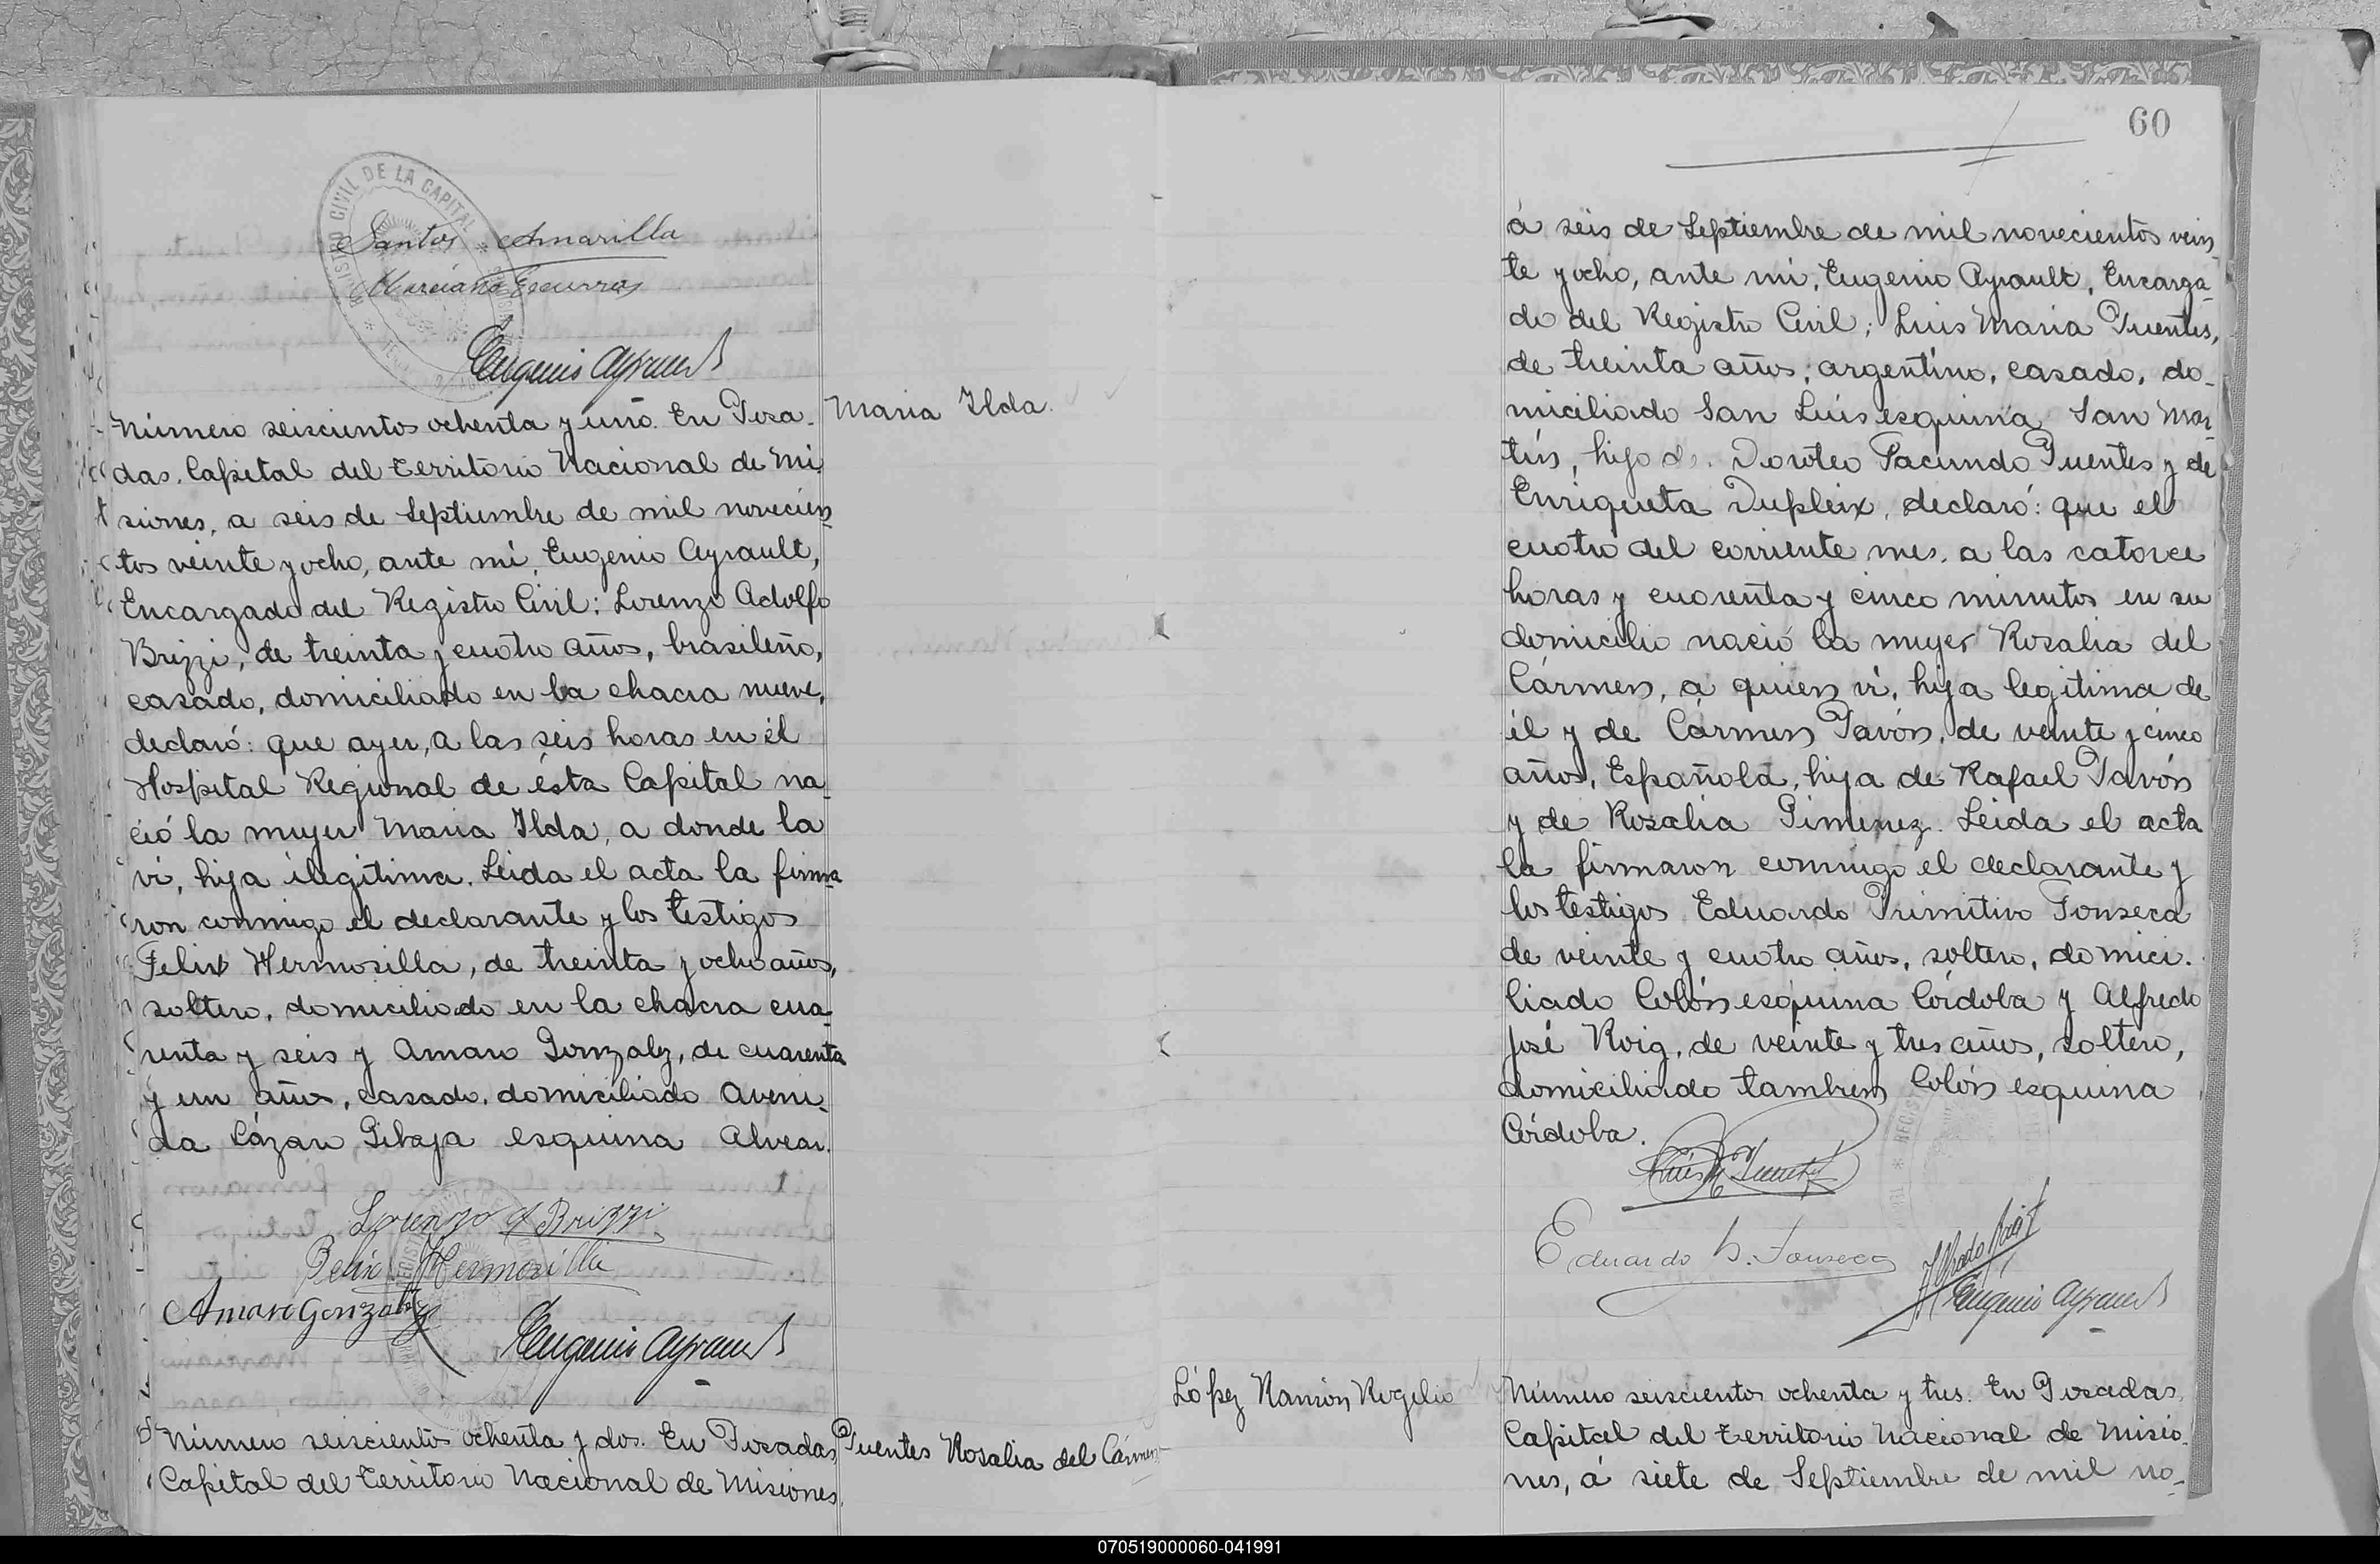 REGISTRO CIVIL DE LA CAPITAL
Santos Amarilla
Marciano Escurra
Eugenio Ayrault
Número seiscientos ochenta y uno. En Posa-
Maria Ilda.
das, Capital del territorio Nacional de Mi-
siones, a seis de Septiembre de mil novecien-
tos veinte y ocho, ante mi, Eugenio Ayrault,
Encargado del Registro Civil: Lorenzo Adolfo
Brizzi, de treinta y cuatro años, brasileño,
casado, domiciliado en la chacra nueve,
declaró: que ayer, a las seis horas en el
Hospital Regional de ésta Capital na-
ció la mujer Maria Ilda, a donde la
vi, hija ilegitima. Leida el acta la firma-
ron conmigo el declarante y los testigos
Felix Hermosilla, de treinta y ocho años,
soltero, domiciliado en la chacra cua-
renta y seis y Amaro Gonzalez, de cuarenta
y un años, casado, domiciliado Aveni-
da Lázaro Gibaja esquina Alvear.
Lorenzo A Brizzi
Felix Hermosilla
Amaro Gonzalez
Eugenio Ayrault
Número seiscientos ochenta y dos. En Posadas,
Puentes Rosalia del Cármen
Capital del territorio Nacional de Misiones,
60
á seis de Septiembre de mil novecientos vein-
te y ocho, ante mi, Eugenio Ayrault, Encarga-
do del Registro Civil; Luis Maria Puentes,
de treinta años, argentino, casado, do-
miciliado San Luis esquina San Mar-
tin, hijo de Doroteo Facundo Puentes y de
Enriqueta Dupleix, declaró: que el
cuatro del corriente mes, a las catorce
horas y cuarenta y cinco minutos en su
domicilio nació la mujer Rosalia del
Cármen, a quien vi, hija legitima de
él y de Cármen Pavón, de veinte y cinco
años, Española, hija de Rafael Pavón
y de Rosalia Gimenez. Leida el acta
la firmaron conmigo el declarante y
los testigos Eduardo Primitivo Fonseca
de veinte y cuatro años, soltero, domici-
liado Colón esquina Córdoba y Alfredo
José Roig, de veinte y tres años, soltero,
domiciliado tambien Colón esquina
Córdoba.
Luis M Puentes
Eduardo P. Fonseca
Alfredo Roig
Eugenio Ayrault
López Ramón Rogelio
Número seiscientos ochenta y tres. En Posadas,
Capital del territorio Nacional de Misio-
nes, á siete de Septiembre de mil no-
070519000060-041991